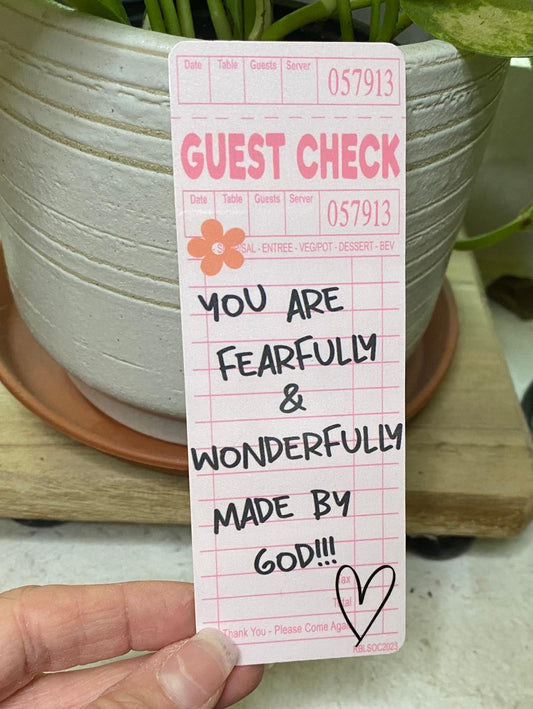 Date Table Guests Server 057913
GUEST CHECK
Date Table Guests Server 057913
SAL - ENTREE - VEG/POT - DESSERT - BEV
YOU ARE
FEARFULLY
&
WONDERFULLY
MADE BY
GOD!!!
Tax
Total
Thank You - Please Come Again
RBLSOC2023